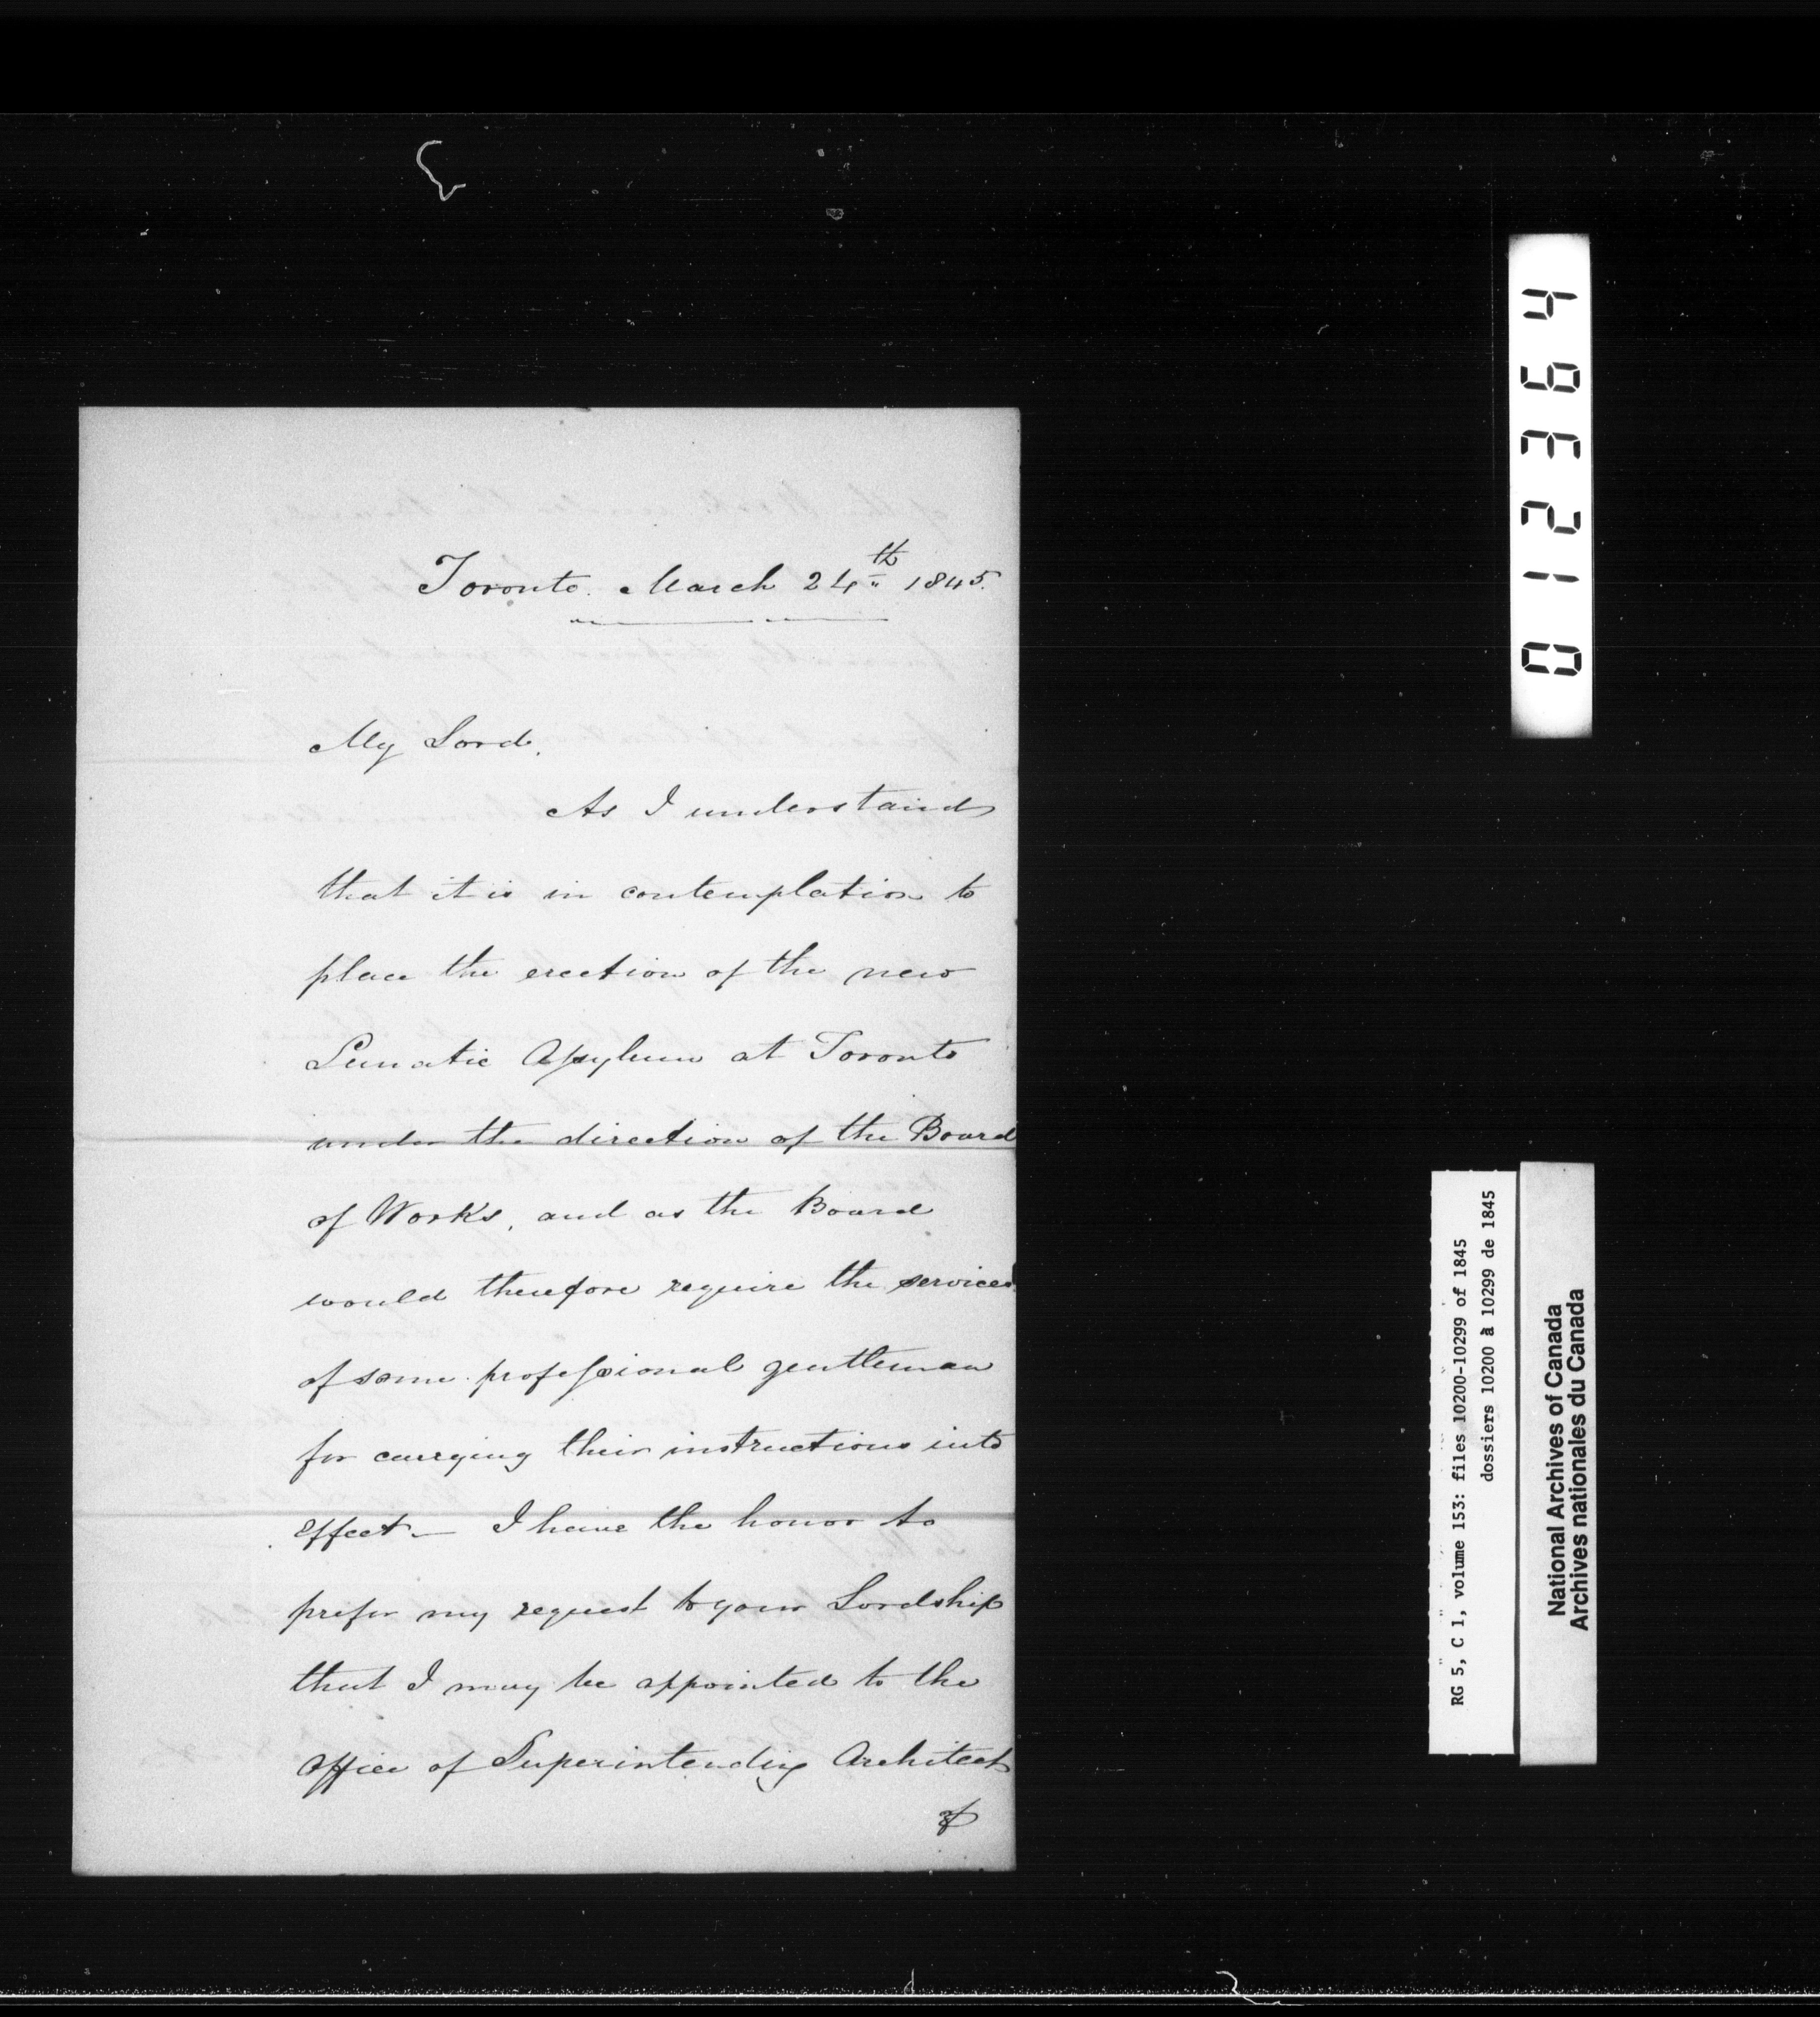 Toronto. March 24th 1845.
My Lord,
As I understand
that it is in contemplation to
place the erection of the new
Lunatic Asylum at Toronto
under the direction of the Board
of Works, and as the Board
would therefore require the services
of some professional gentleman
for carrying their instructions into
effect — I have the honor to
prefer my request to your Lordship
that I may be appointed to the
office of Superintending Architect
of
012364
RG 5, C 1, volume 153: files 10200-10299 of 1845
dossiers 10200 à 10299 de 1845
National Archives of Canada
Archives nationales du Canada